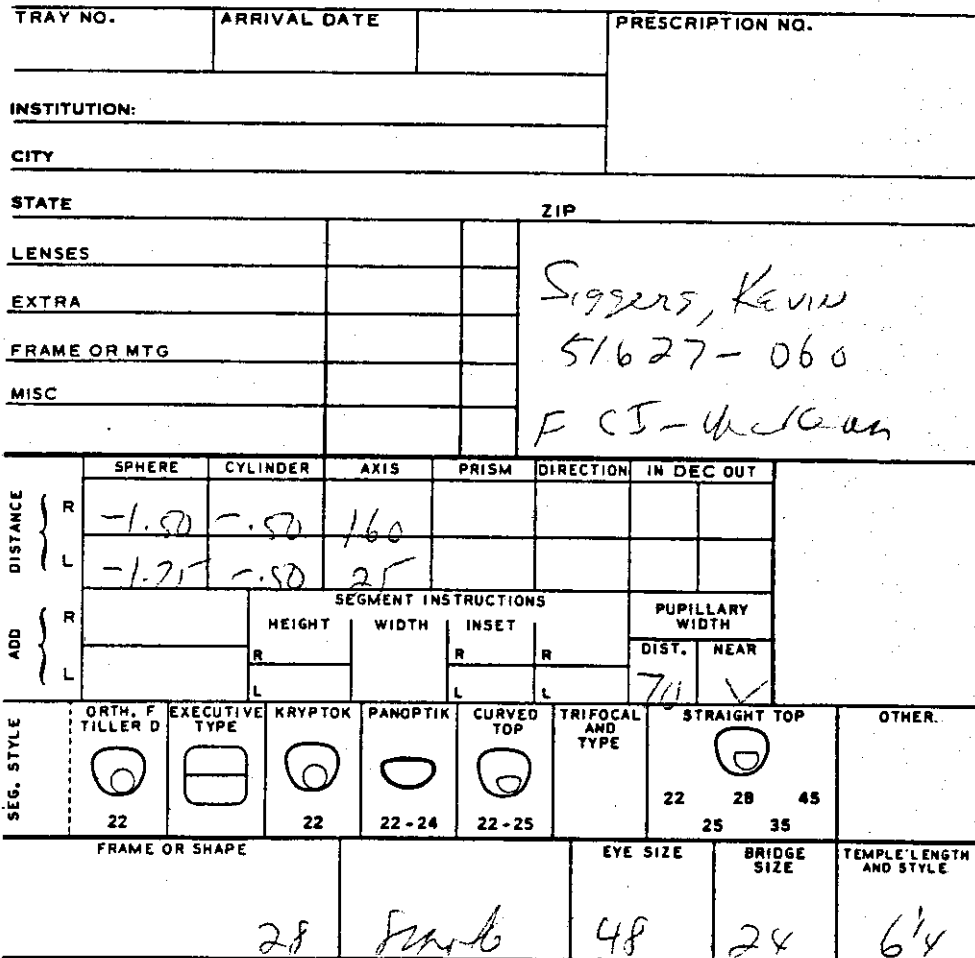 TRAY NO. ARRIVAL DATE PRESCRIPTION NO.
INSTITUTION:
CITY
STATE ZIP
LENSES
EXTRA
FRAME OR MTG
MISC
Siggers, Kevin
51627-060
FCI-
SPHERE CYLINDER AXIS PRISM DIRECTION IN DEC OUT
DISTANCE
R -1.50 -.50 160
L -1.75 -.50 25
ADD
R
L
SEGMENT INSTRUCTIONS
HEIGHT WIDTH INSET
R R R
L L L
PUPILLARY WIDTH
DIST. NEAR
70
SEG. STYLE
ORTH. F TILLER D EXECUTIVE TYPE KRYPTOK PANOPTIK CURVED TOP TRIFOCAL AND TYPE STRAIGHT TOP OTHER.
22 22 22-24 22-25 22 28 45
25 35
FRAME OR SHAPE EYE SIZE BRIDGE SIZE TEMPLE LENGTH AND STYLE
28 48 24 6 1/4